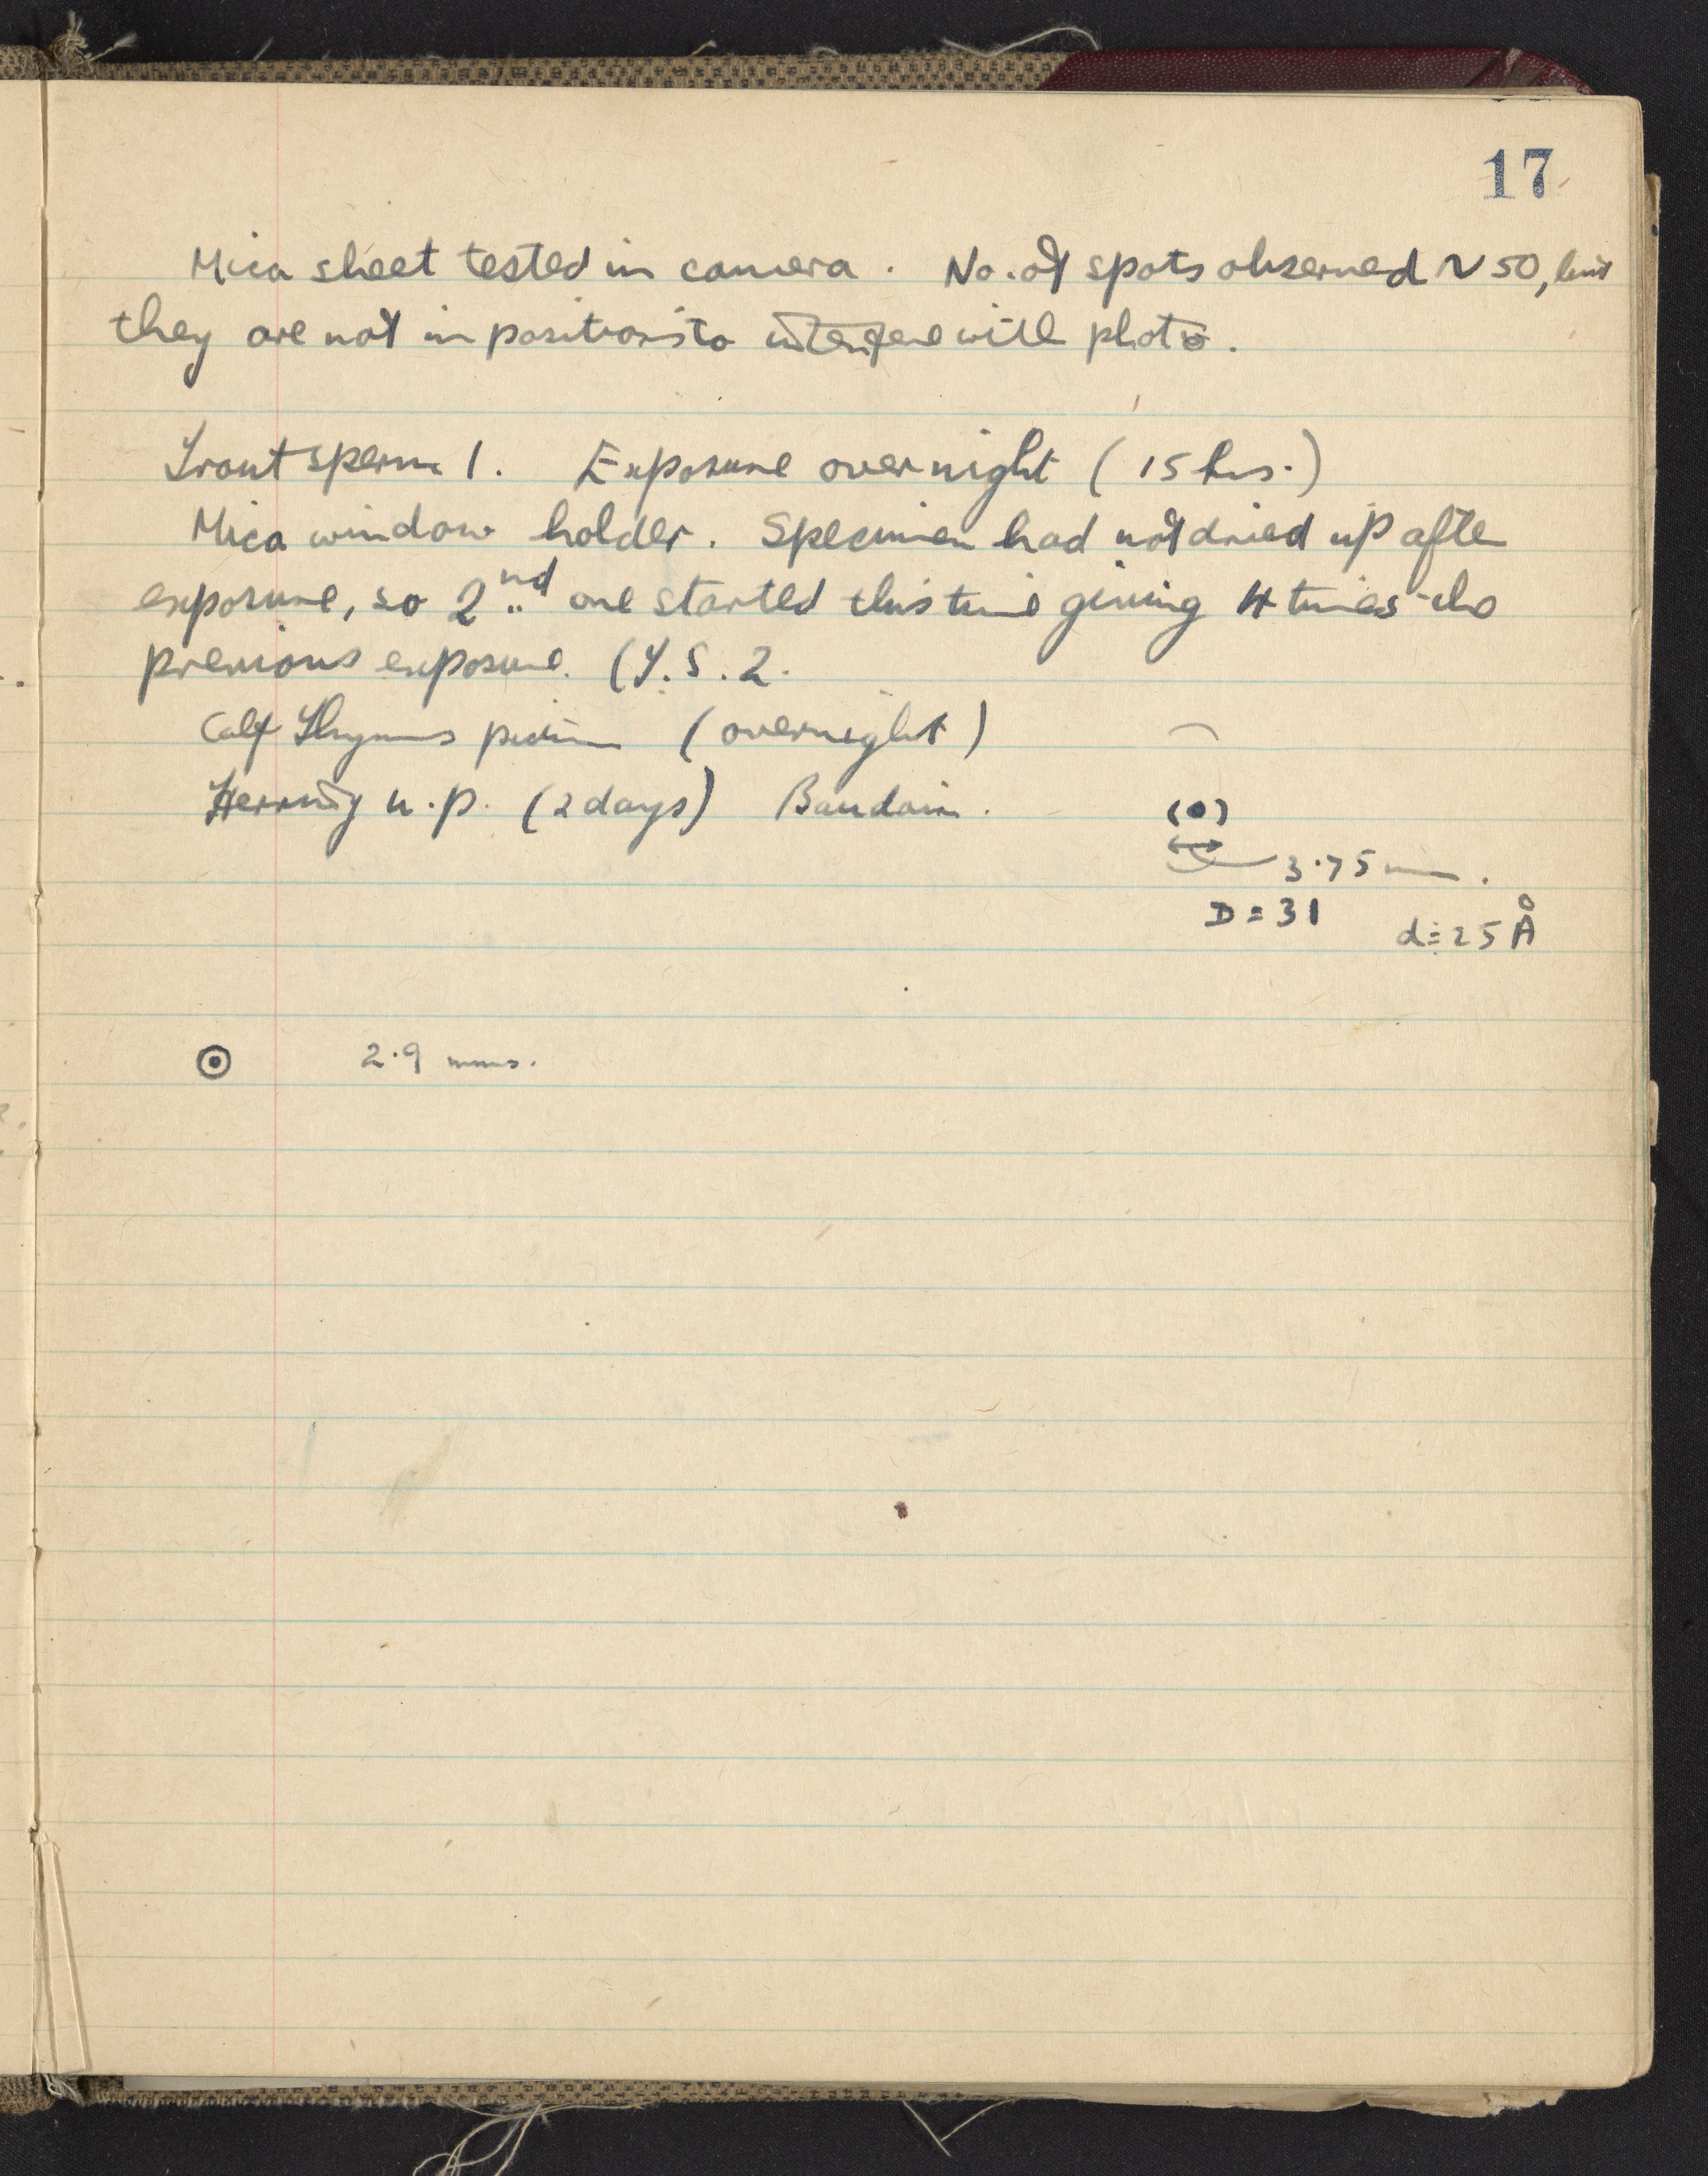 17
Mica sheet tested in camera. No. of spots observed ~ 50, but
they are not in positions to interfere with photo.
Trout sperm 1. Exposure overnight (15 hrs.)
Mica window holder. Specimen had not dried up after
exposure, so 2nd one started this time giving 4 times the
previous exposure. (T.S.2.
Calf Thymus (overnight)
Herring n.p. (2 days)
(•)
3.75 mm.
D = 31 d = 25 Å
2.9 mms.